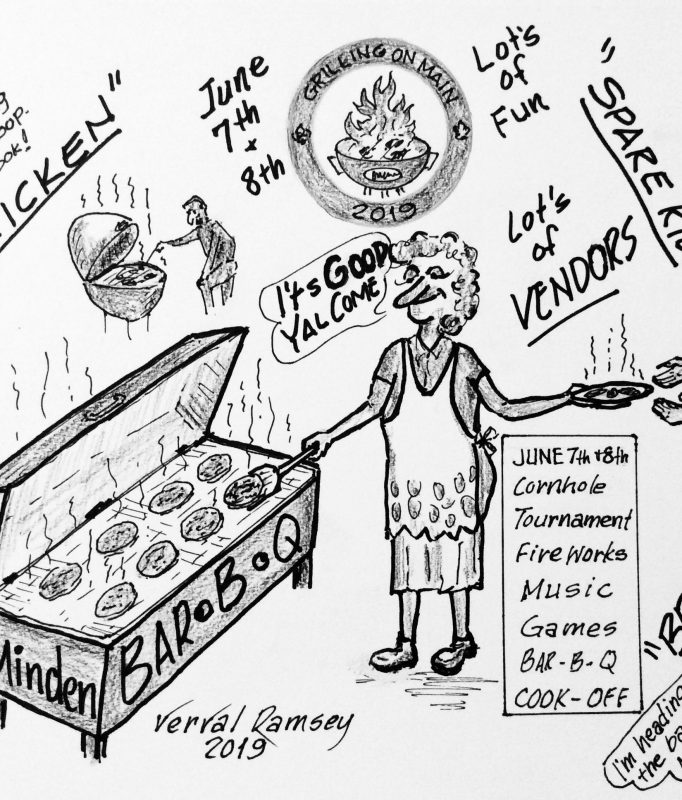 OOP.
OOK!
ICKEN"
June
7th
+
8th
GRILLING ON MAIN
2019
Lot's
of
Fun
"SPARE RI
Lot's
of
VENDORS
It's GOOD
YAL COME
JUNE 7th + 8th
Cornhole
Tournament
FireWorks
Music
Games
BAR-B-Q
COOK-OFF
BAR•B•Q
Minden
Verval Ramsey
2019
"B
I'm heading
the ba